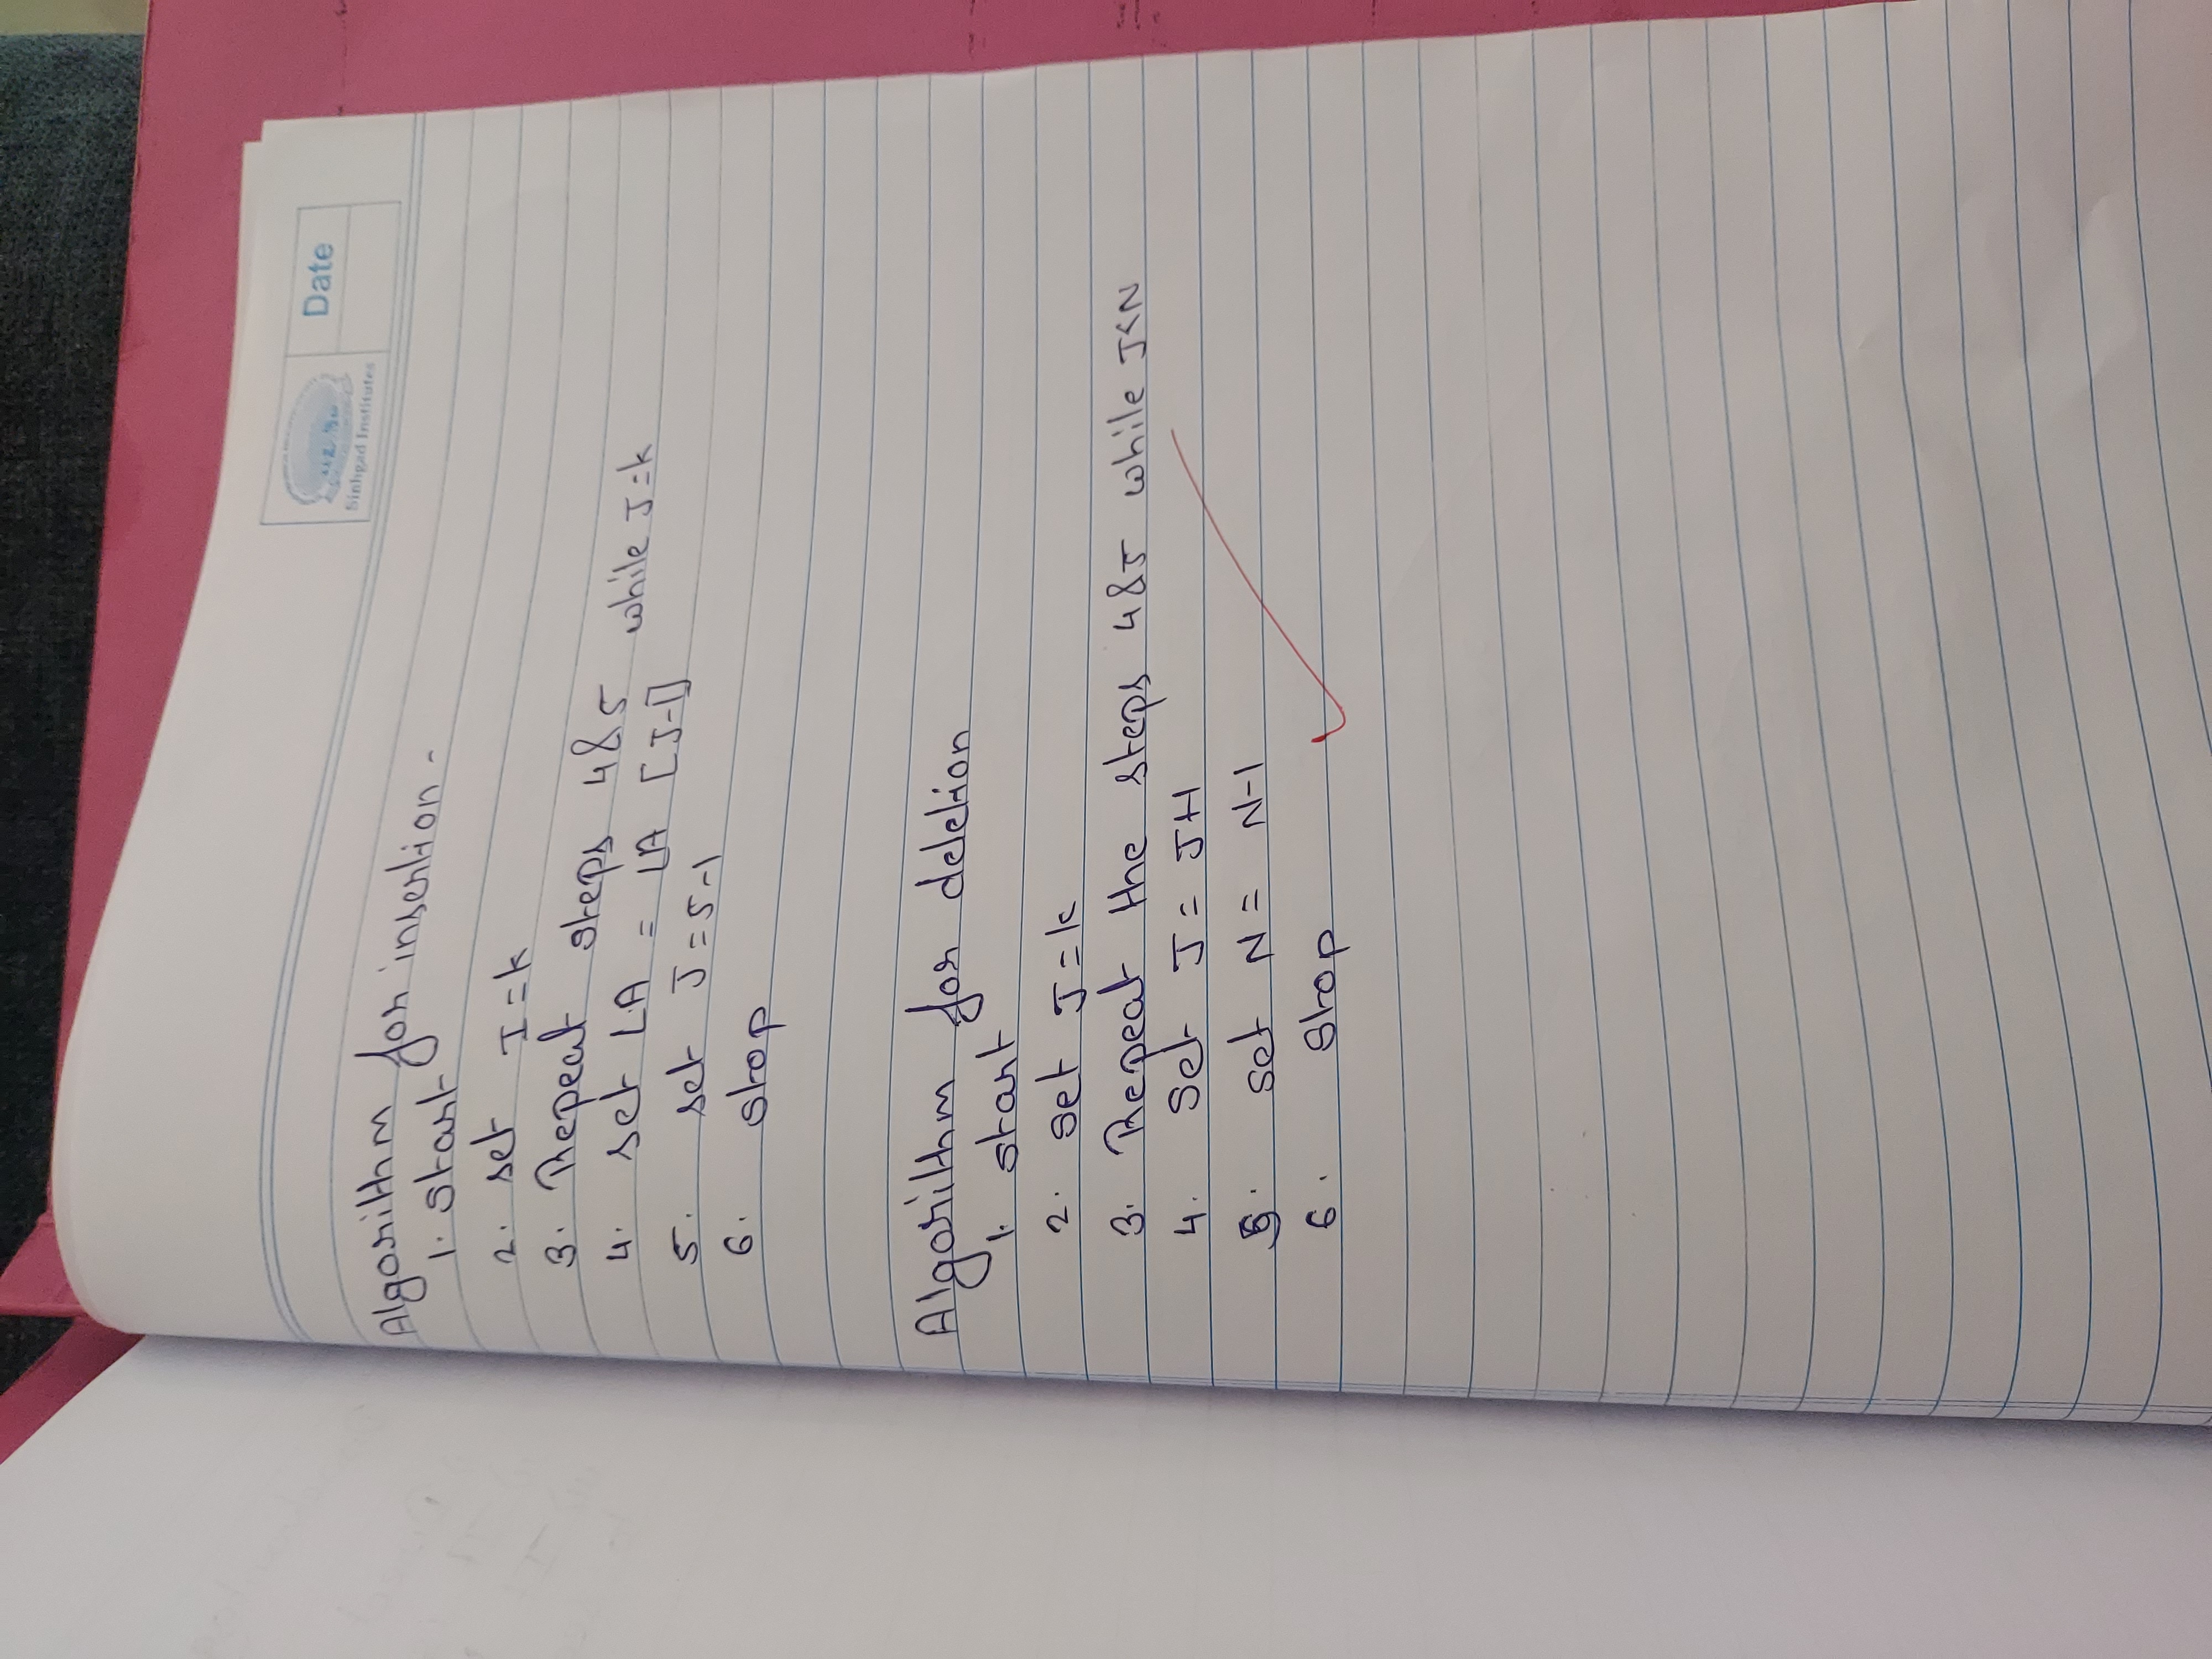 Date
Sinhgad Institutes
Algorithm for insertion -
1. Start
2. set I = k
3. Repeat steps 4 & 5 while J = k
4. set LA = LA [J-1]
5. set J = 5-1
6. stop
Algorithm for deletion
1. start
2. set J = k
3. Repeat the steps 4 & 5 while J < N
4. Set J = J+1
5. set N = N-1
6. Stop